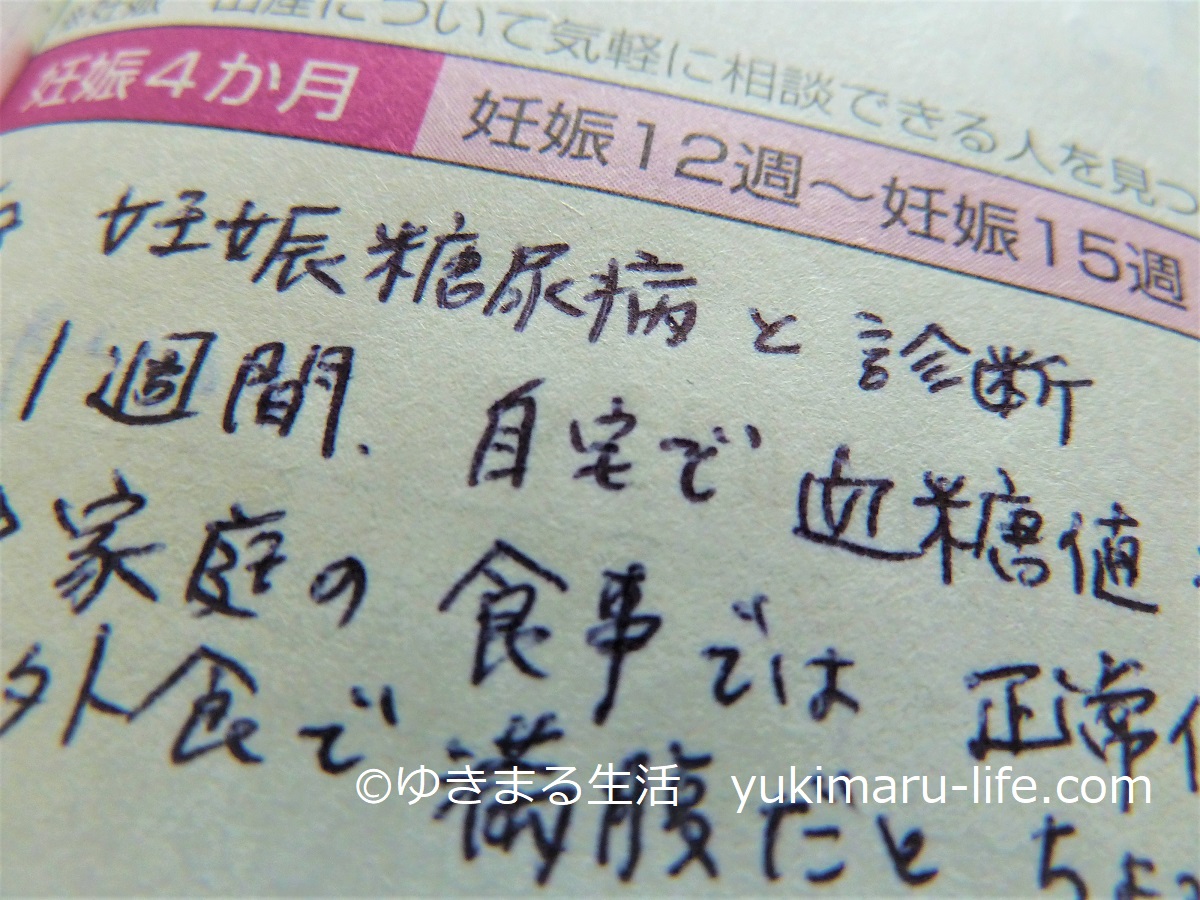 出産について気軽に相談できる人を見つ
妊娠4か月 妊娠12週～妊娠15週
妊娠糖尿病と診断
1週間、自宅で血糖値
家庭の食事では 正常
外食で満腹だと ちょっ
©ゆきまる生活 yukimaru-life.com